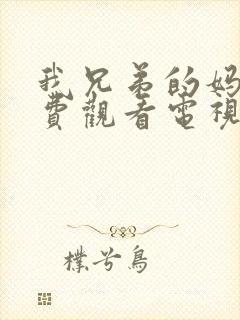 我兄弟的妈
費觀看電視
樸兮鳥